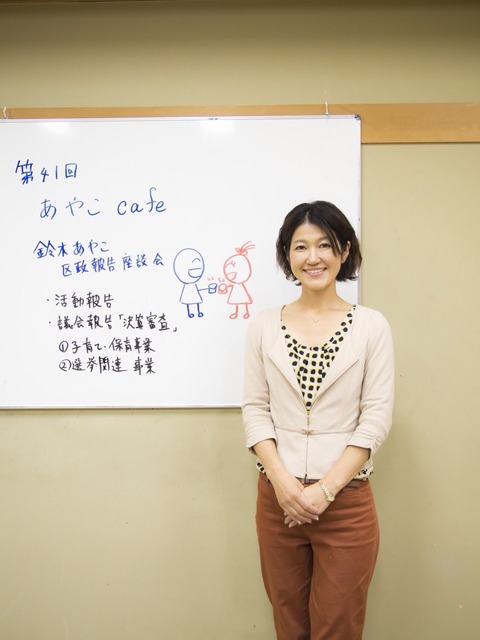 第41回
あやこ cafe
鈴木あやこ
区政報告座談会
・活動報告
・議会報告「決算審査」
①子育て・保育事業
②選挙関連 事業